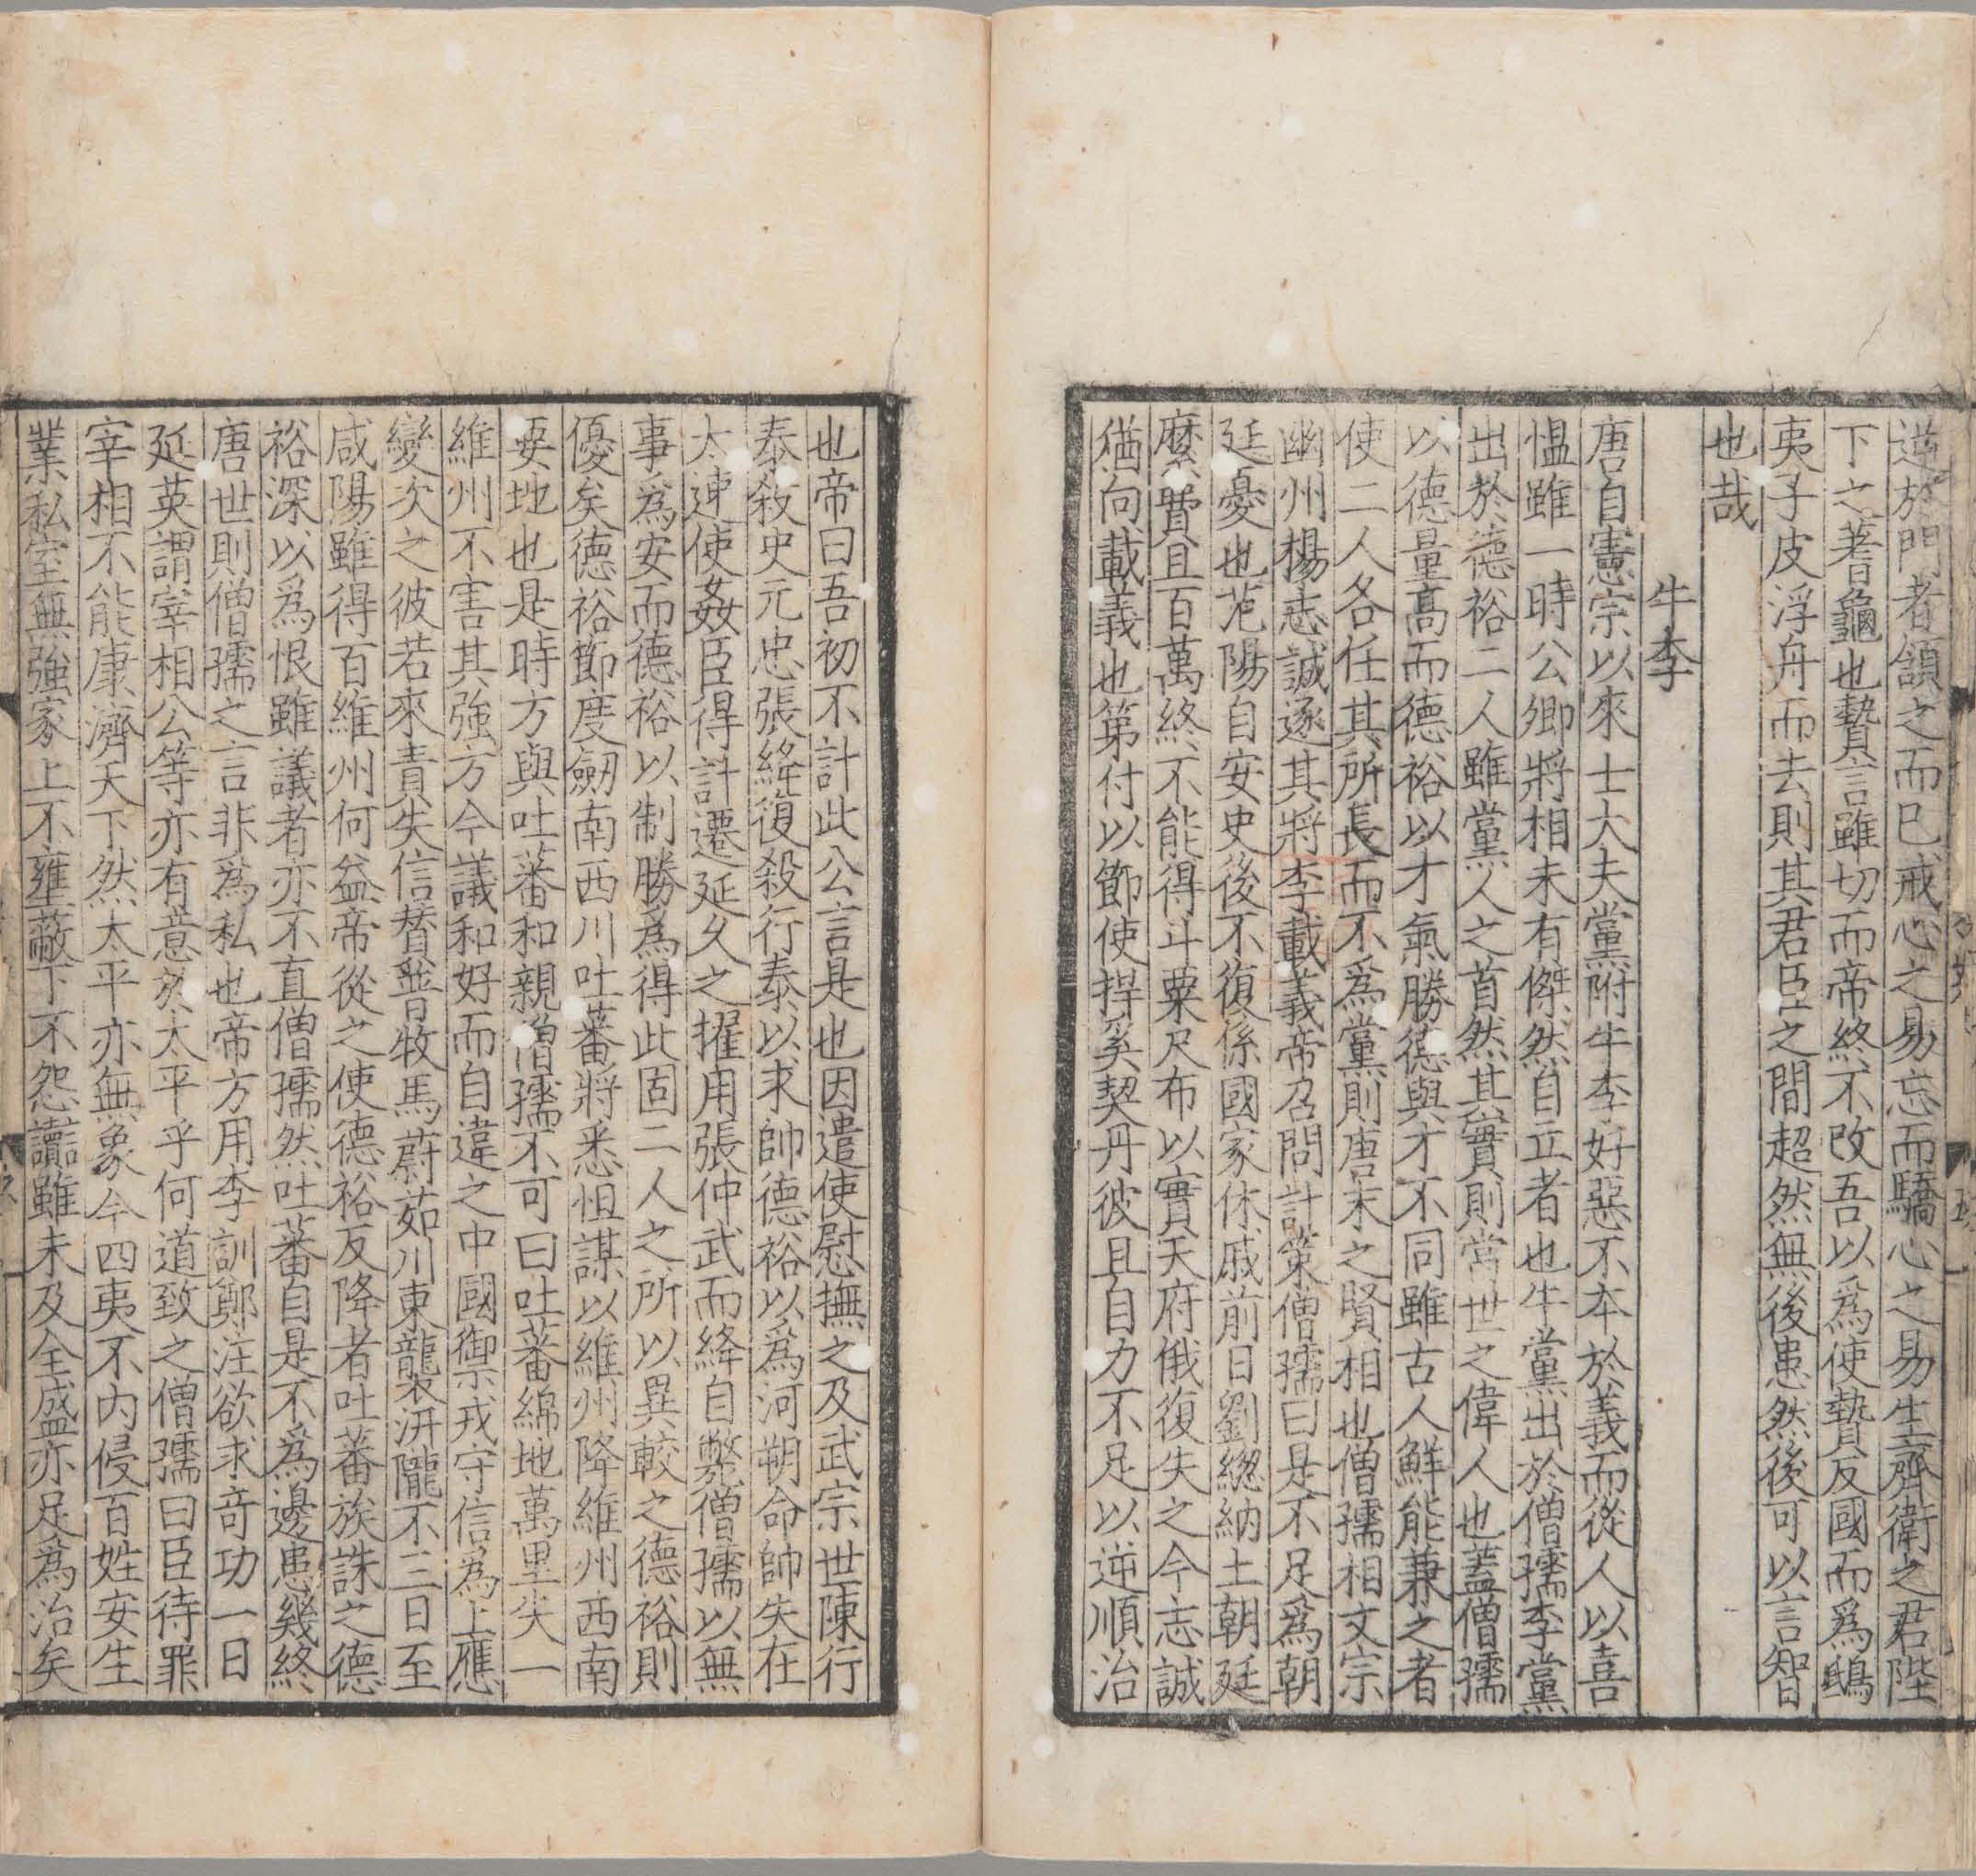 逆於門者頷之而已戒心之易忘而驕心之易生齊衛之君陛
下之蓍龜也贄言雖切而帝終不改吾以爲使贄反國而爲鴟
夷子皮浮舟而去則其君臣之間超然無後患然後可以言智
也哉
牛李
唐自憲宗以來士大夫黨附牛李好惡不本於義而從人以喜
愠雖一時公卿將相未有傑然自立者也牛黨出於僧孺李黨
出於德裕二人雖黨人之首然其實則當世之偉人也蓋僧孺
以德量高而德裕以才氣勝德與才不同雖古人鮮能兼之者
使二人各任其所長而不爲黨則唐末之賢相也僧孺相文宗
幽州楊志誠逐其將李載義帝召問計策僧孺曰是不足爲朝
廷憂也范陽自安史後不復係國家休戚前日劉緫納土朝廷
糜費且百萬終不能得斗粟尺布以實天府俄復失之今志誠
猶向載義也第付以節使捍奚契丹彼且自力不足以逆順治
也帝曰吾初不計此公言是也因遣使慰撫之及武宗世陳行
泰殺史元忠張絳復殺行泰以求帥德裕以爲河朔命帥失在
太速使姦臣得計遷延久之擢用張仲武而絳自斃僧孺以無
事爲安而德裕以制勝爲得此固二人之所以異較之德裕則
優矣德裕節度劒南西川吐蕃將悉怛謀以維州降維州西南
要地也是時方與吐蕃和親僧孺不可曰吐蕃綿地萬里失一
維州不害其強方今議和好而自違之中國禦戎守信爲上應
變次之彼若來責失信贊普牧馬蔚茹川東襲汧隴不三日至
咸陽雖得百維州何益帝從之使德裕反降者吐蕃族誅之德
裕深以爲恨雖議者亦不直僧孺然吐蕃自是不爲邊患幾終
唐世則僧孺之言非爲私也帝方用李訓鄭注欲求奇功一日
延英謂宰相公等亦有意於太平乎何道致之僧孺曰臣待罪
宰相不能康濟天下然太平亦無象今四夷不內侵百姓安生
業私室無強家上不壅蔽下不怨讟雖未及全盛亦足爲治矣